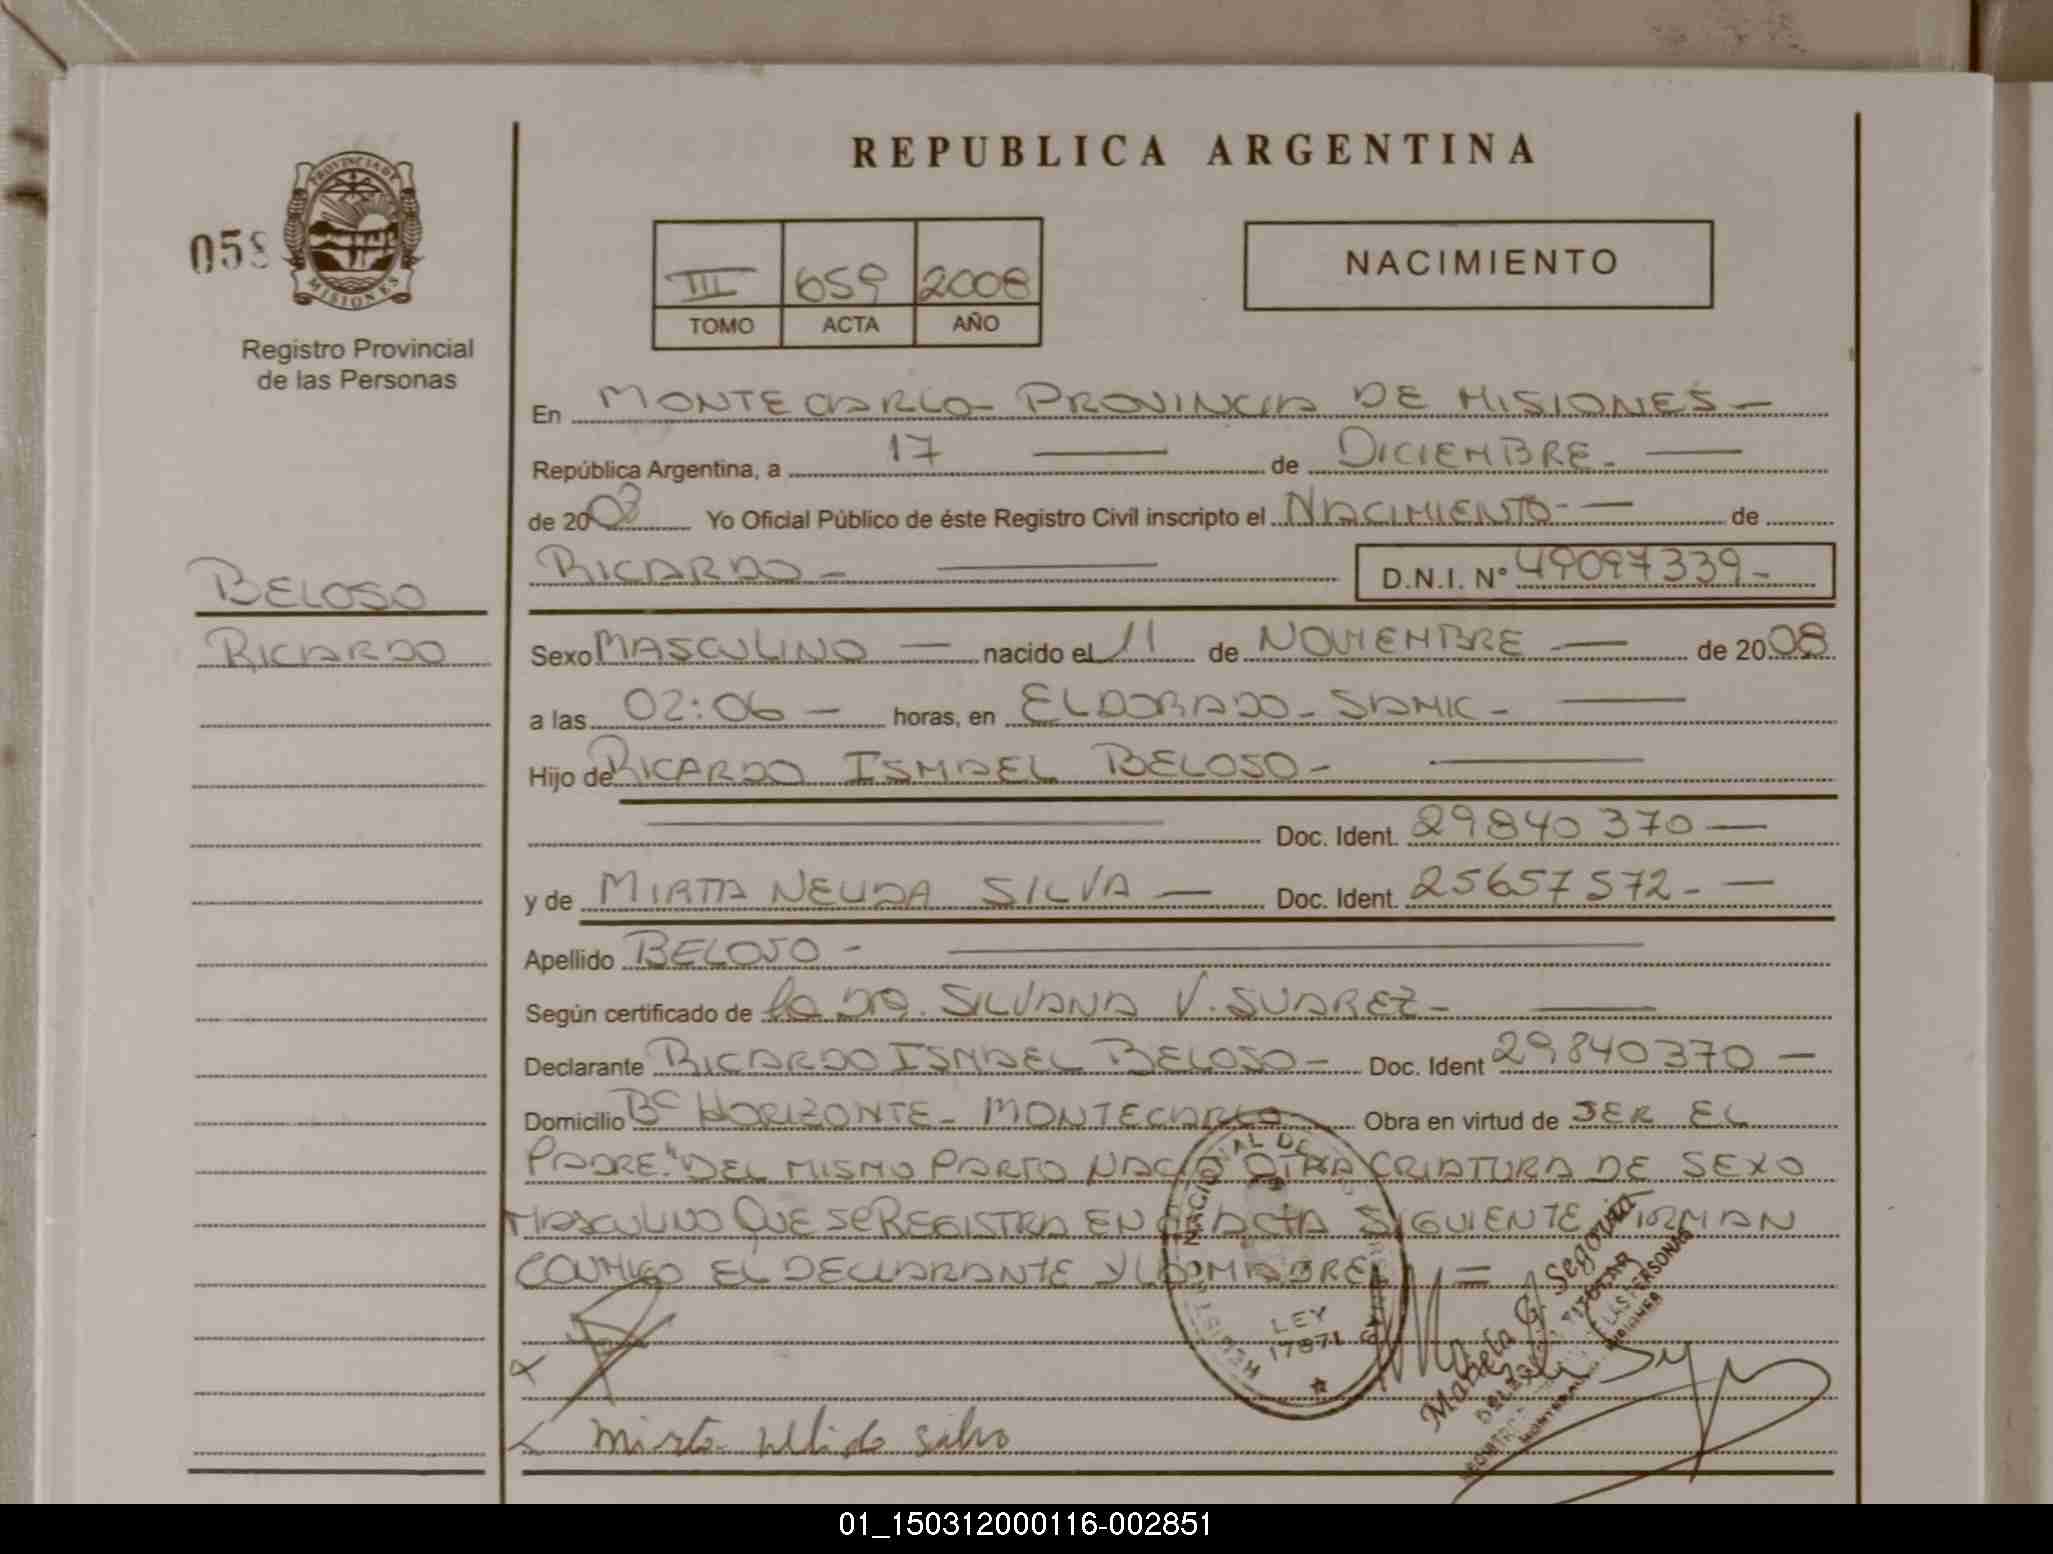 REPUBLICA ARGENTINA
PROVINCIA DE MISIONES
058
Registro Provincial
de las Personas
III 659 2008
TOMO ACTA AÑO
NACIMIENTO
En MONTECARLO - PROVINCIA DE MISIONES -
República Argentina, a 17 — de DICIEMBRE. —
de 2008 Yo Oficial Público de éste Registro Civil inscripto el NACIMIENTO - — de
RICARDO - — D.N.I. N° 49097339 -
BELOSO
RICARDO
Sexo MASCULINO — nacido el 11 de NOVIEMBRE — de 2008
a las 02:06 — horas, en ELDORADO - SAMIC - —
Hijo de RICARDO ISMAEL BELOSO - —
— Doc. Ident. 29840370 —
y de MIRTA NELIDA SILVA — Doc. Ident. 25657572 - —
Apellido BELOSO - —
Según certificado de la DRA. SILVANA V. SUAREZ - —
Declarante RICARDO ISMAEL BELOSO - Doc. Ident 29840370 —
Domicilio Bº HORIZONTE - MONTECARLO Obra en virtud de SER EL
PADRE." DEL MISMO PARTO NACIO OTRA CRIATURA DE SEXO
MASCULINO QUE SE REGISTRA EN EL ACTA SIGUIENTE FIRMAN
CONMIGO EL DECLARANTE Y LA MADRE —
LEY
17671
Mabela G. Segovia
TITULAR
DE LAS PERSONAS
Mirta Nelida Silva
01_150312000116-002851